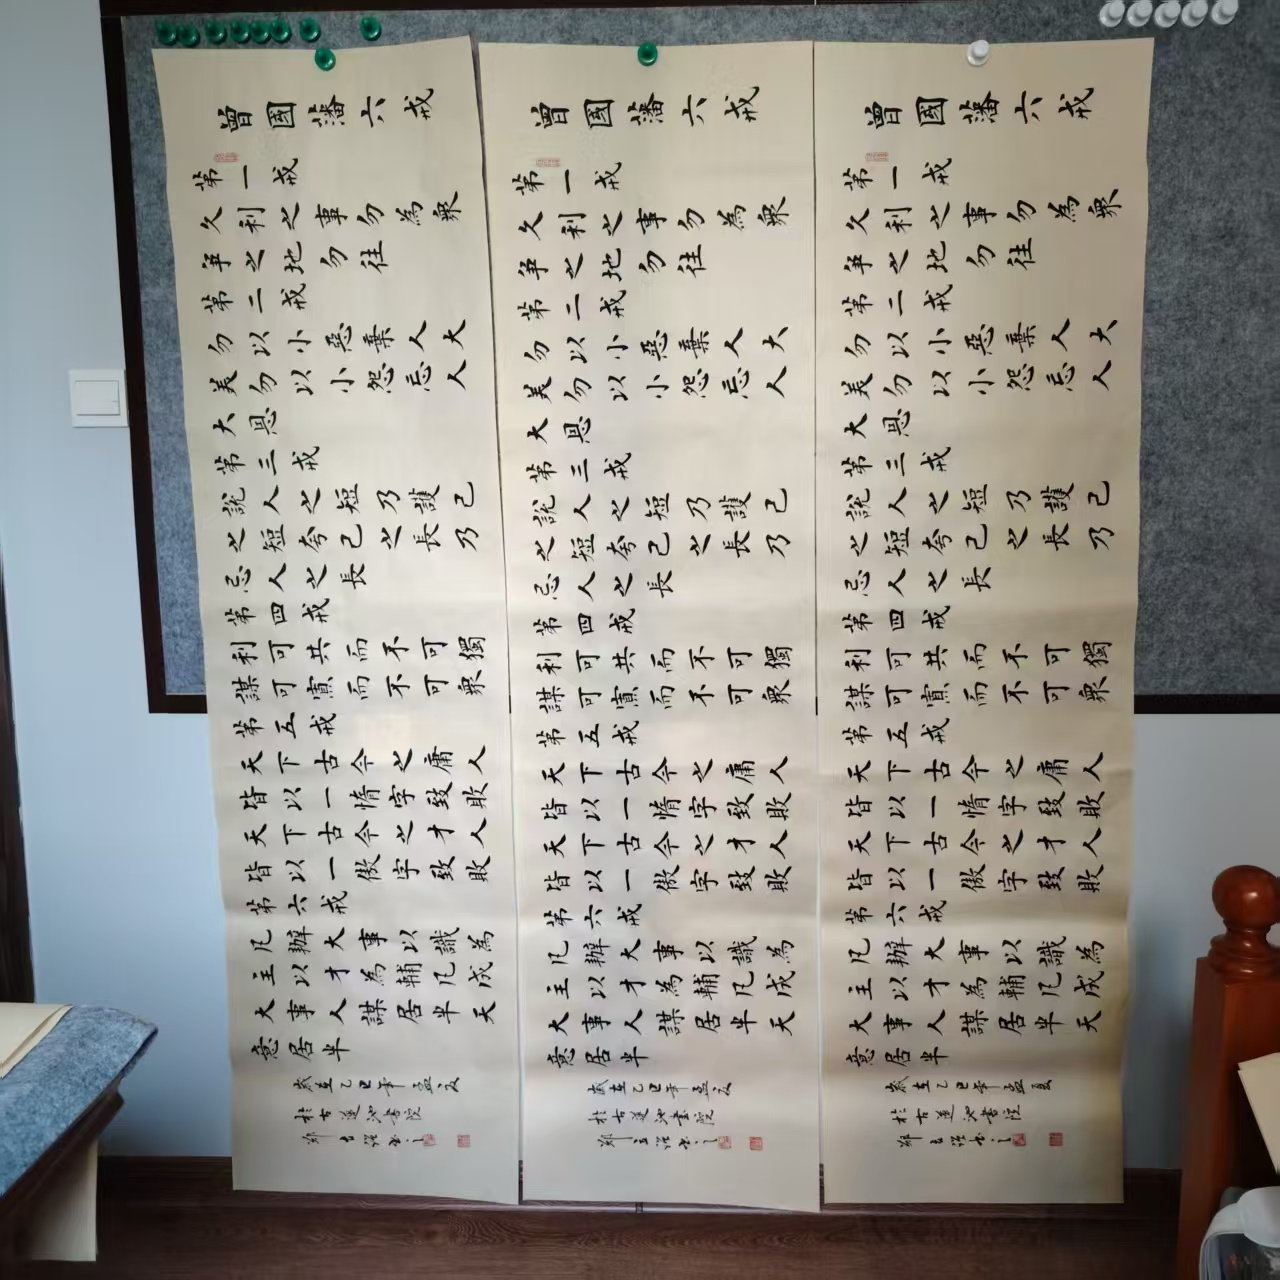 曾國藩六戒
第一戒
久利之事勿為眾
爭之地勿往
第二戒
勿以小惡棄人大
美勿以小怨忘人
大恩
第三戒
說人之短乃護己
之短夸己之長乃
忌人之長
第四戒
利可共而不可獨
謀可寡而不可眾
第五戒
天下古今之庸人
皆以一惰字致敗
天下古今之才人
皆以一傲字致敗
第六戒
凡辦大事以識為
主以才為輔凡成
大事人謀居半天
意居半
歲在乙巳年孟夏
於古蓮池書院
郑书之
曾國藩六戒
第一戒
久利之事勿為眾
爭之地勿往
第二戒
勿以小惡棄人大
美勿以小怨忘人
大恩
第三戒
說人之短乃護己
之短夸己之長乃
忌人之長
第四戒
利可共而不可獨
謀可寡而不可眾
第五戒
天下古今之庸人
皆以一惰字致敗
天下古今之才人
皆以一傲字致敗
第六戒
凡辦大事以識為
主以才為輔凡成
大事人謀居半天
意居半
歲在乙巳年孟夏
於古蓮池書院
郑书之
曾國藩六戒
第一戒
久利之事勿為眾
爭之地勿往
第二戒
勿以小惡棄人大
美勿以小怨忘人
大恩
第三戒
說人之短乃護己
之短夸己之長乃
忌人之長
第四戒
利可共而不可獨
謀可寡而不可眾
第五戒
天下古今之庸人
皆以一惰字致敗
天下古今之才人
皆以一傲字致敗
第六戒
凡辦大事以識為
主以才為輔凡成
大事人謀居半天
意居半
歲在乙巳年孟夏
於古蓮池書院
郑书之